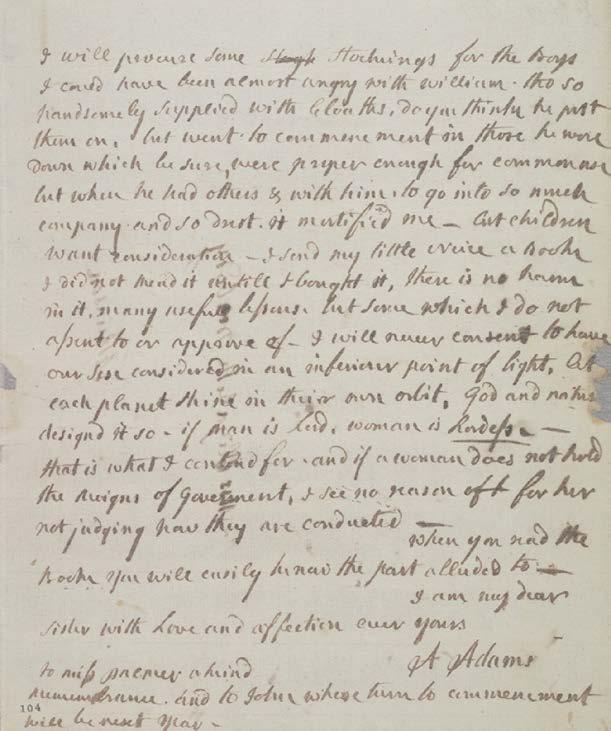 I will procure some Stough Stockings for the Boys
I could have been almost angry with william. tho so
handsomely supplied with Cloaths, do you think he put
them on, but went to commencement in those he wore
down which be sure, were proper enough for common use
but when he had others & with him, to go into so much
company and so drest. it mortified me — but children
want consideration — I send my little Neice a Book
I did not read it untill I bought it, there is no harm
in it, many usefull lessons. but some which I do not
assent to or approve of — I will never consent to have
our Sex considered in an inferiour point of light. Let
each planet shine in their own orbit, God and nature
designd it so — if man is Lord, woman is Lordess —
that is what I contend for. and if a woman does not hold
the Reigns of Government, I see no reason oft for her
not judging how they are conducted —
when you read the
Book You will easily know the part alluded to —
I am my dear
Sister with Love and affection ever yours
A Adams
to miss palmer a kind
rememberance. and to John whose turn to commencement
will be next Year —
104